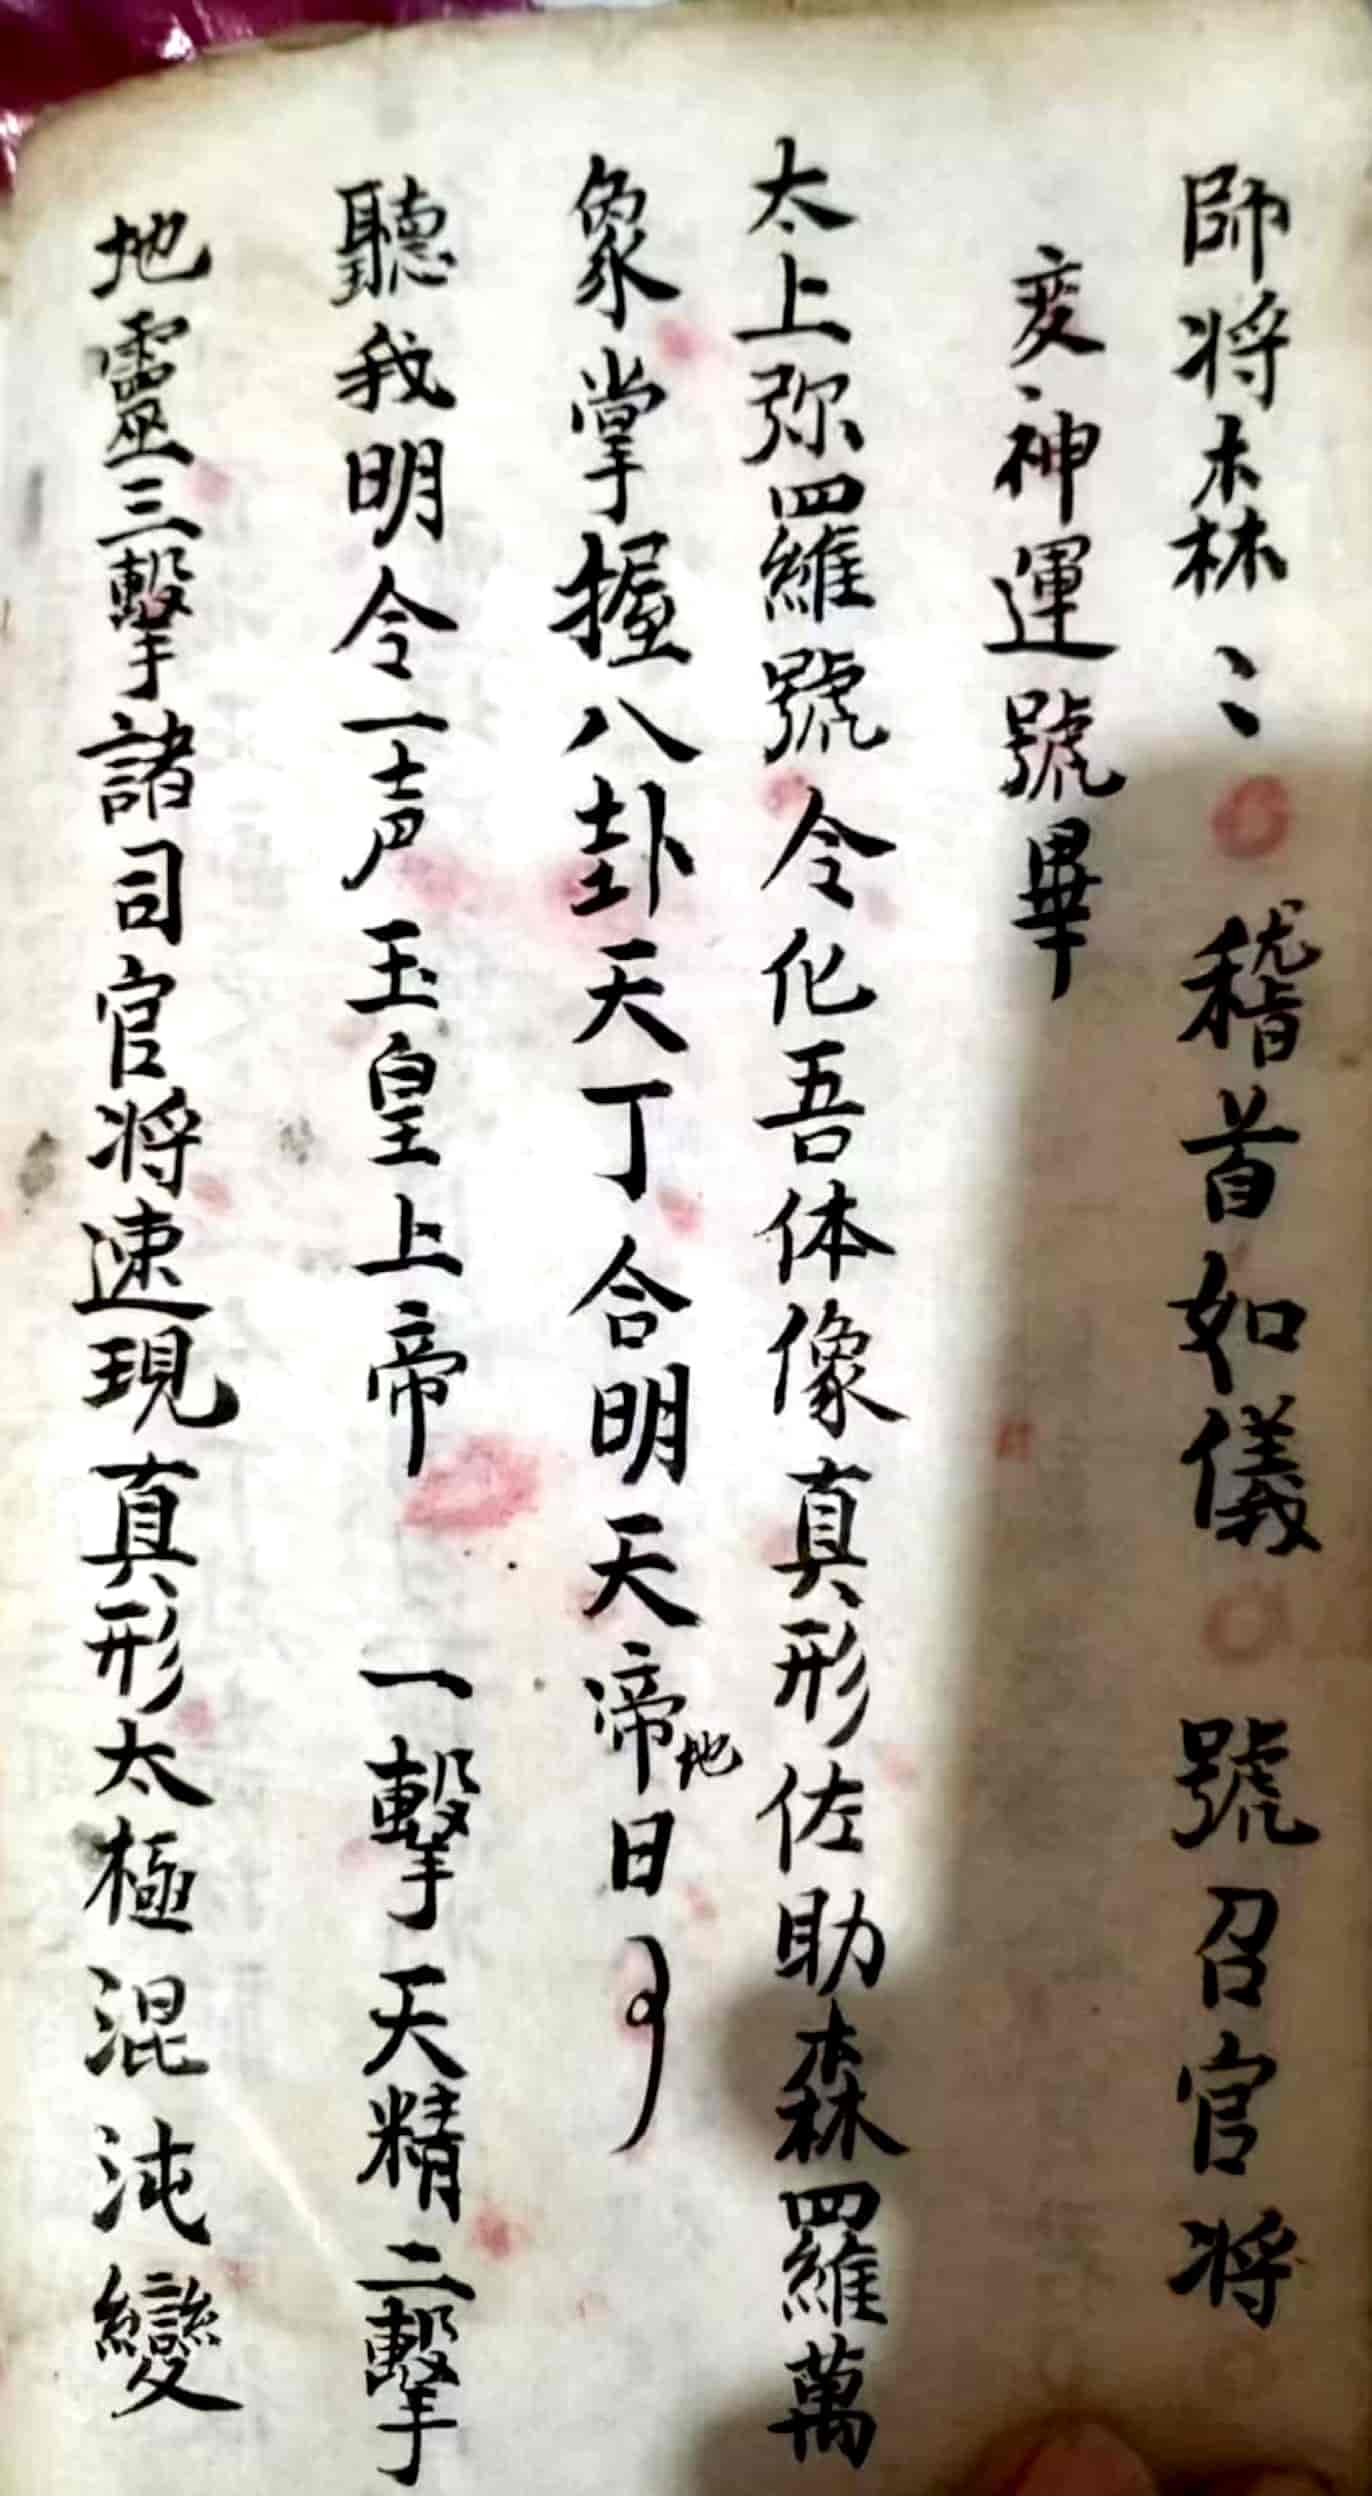 師将森〻 稽首如儀 號召官将
变神運號畢
太上弥羅號令化吾体像真形佐助森羅萬
象掌握八卦天丁合明天帝地日
聽我明令一声玉皇上帝 一擊天精二擊
地靈三擊諸司官将速現真形太極混沌變